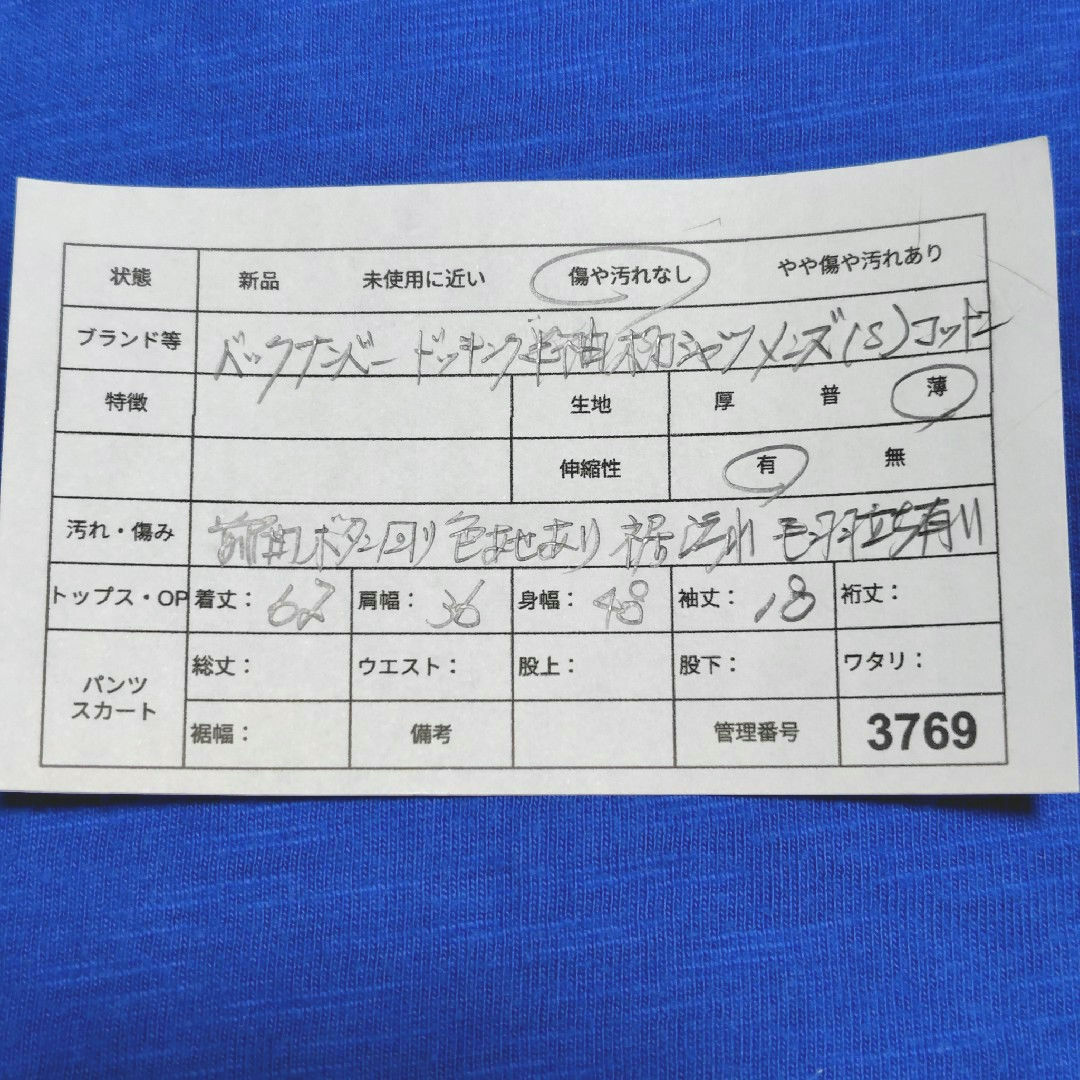 状態 新品 未使用に近い 傷や汚れなし やや傷や汚れあり
ブランド等 バックナンバー ドッキング半袖 柄シャツ メンズ(S)コットン
特徴 生地 厚 普 薄
伸縮性 有 無
汚れ・傷み 前ボタン回り色あせあり 裾汚れ 毛羽立ち有り
トップス・OP 着丈: 62 肩幅: 36 身幅: 48 袖丈: 18 裄丈:
パンツ スカート 総丈: ウエスト: 股上: 股下: ワタリ:
裾幅: 備考 管理番号 3769